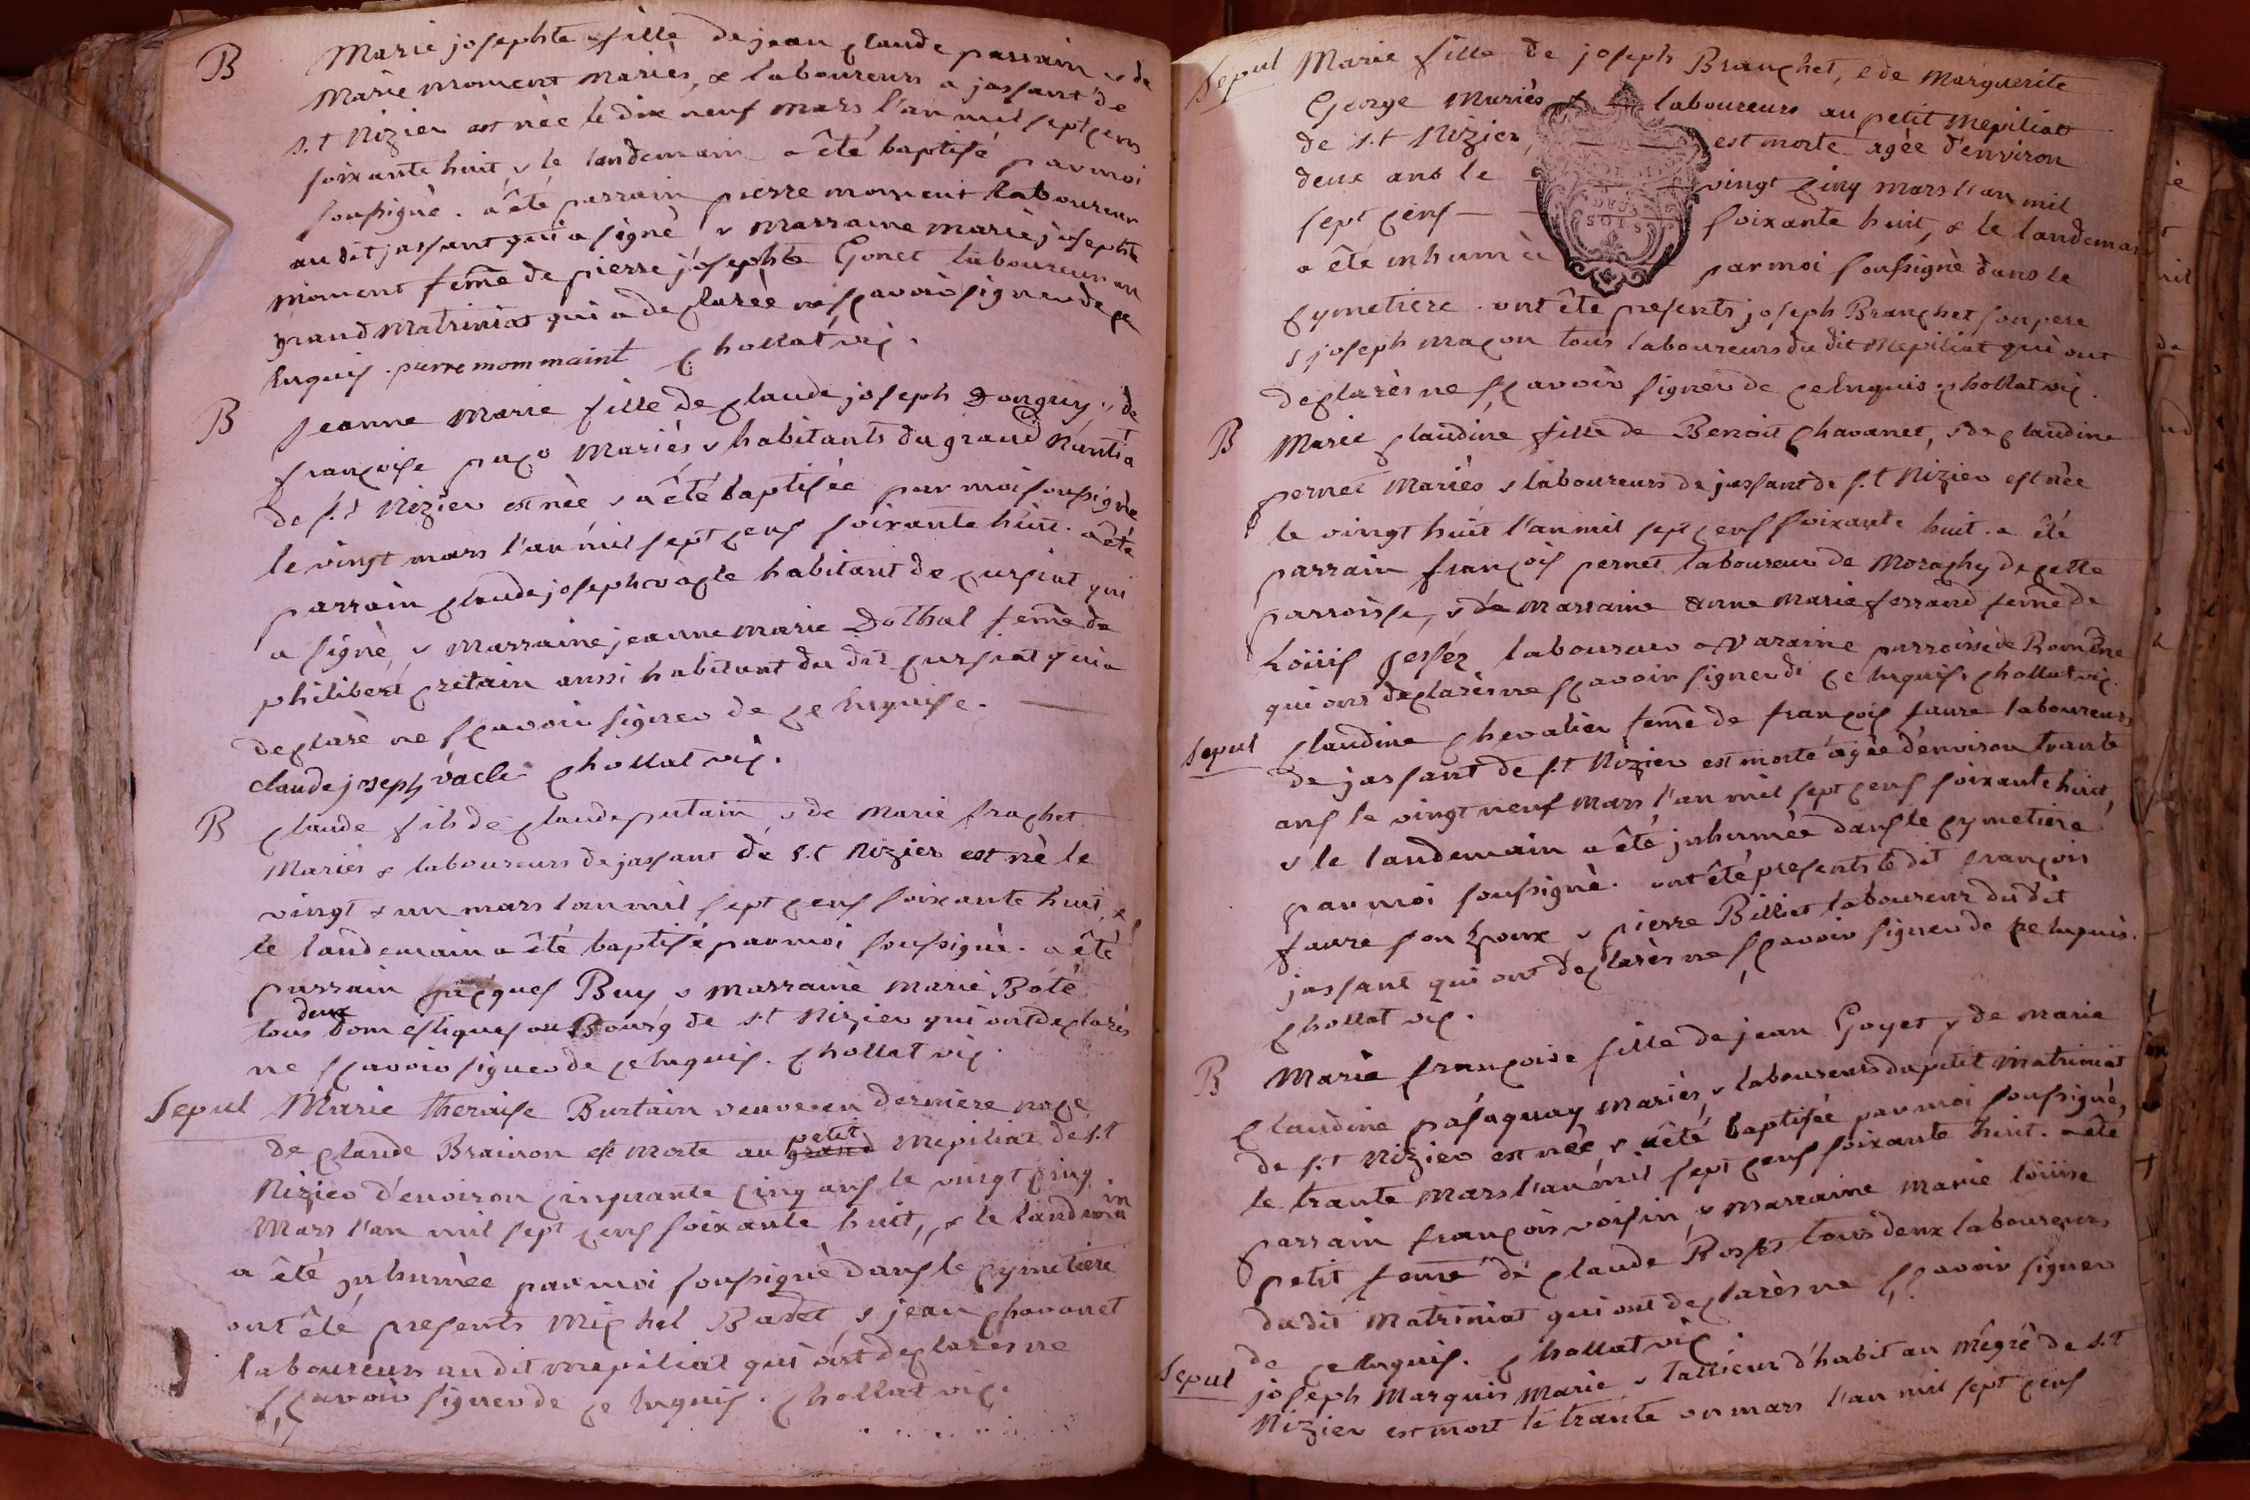 B Marie josephte fille de jean claude parrain & de
Marie moment Mariés, & laboureurs a jassant de
s.t Nizier est née le dix neuf mars l'an mil sept cens
soixante huit, & le landemain a êté baptisé par moi
soussigné. a êté parrain pierre moment laboureur
au dit jassant qui a signé & marraine marie josephte
moment feme de pierre josephte Gonet laboureur au
grand Matriniat qui a declarée ne sçavoir signer de ce
Enquis. pierre mommaint chollat vic.
B Jeanne Marie fille de claude joseph Donguy & de
françoise paco Mariés & habitants du grand Nantia
de s.t Nizier est née & a êté baptisée par moi soussigné
le vingt mars l'an mil sept cens soixante huit. a êté
parrain claude joseph vacle habitant de cursiat qui
a signé, & marraine jeanne marie Dothal feme de
philibert cretain aussi habitant du dit cursiat qui a
declaré ne sçavoir signer de ce Enquise.
claude joseph vacle chollat vic.
B claude fils de claude putain & de Marie frachet
Mariés & laboureurs de jassant de s.t Nizier est né le
vingt & un mars l'an mil sept cens soixante huit, &
le landemain a êté baptisé par moi soussigné. a êté
parrain jacques Buy & marraine marie Boté
tous deux domestiques au Bourg de s.t Nizier qui ont declarés
ne sçavoir signer de ce Enquis. chollat vic.
Sepul Marie theraise Burtain veuve en derniere noce
de claude Brainon est morte au grand petit Mepiliat de s.t
Nizier d'environ cinquante cinq ans le vingt cinq
Mars l'an mil sept cens soixante huit, & le landmain
a êté inhumée par moi soussigné dans le cymetiere
ont êté presents Michel Badet & jean chavanet
laboureurs au dit mepiliat qui ont declarés ne
sçavoir signer de ce Enquis. chollat vic.
Sepul Marie fille de joseph Branchet, & de Marguerite
George Mariés & laboureurs au petit Mepiliat
de s.t Nizier, est morte agée d'environ
deux ans le vingt cinq mars l'an mil
sept cens soixante huit, & le landemain
a êté inhumée par moi soussigné dans le
cymetiere. ont êté presents joseph Branchet son pere
& joseph maçon tous laboureurs du dit Mepiliat qui ont
declarés ne sçavoir signer de ce Enquis chollat vic.
B Marie claudine fille de Benoit chavanet, & de claudine
pernet Mariés & laboureurs de jassant de s.t Nizier est née
le vingt huit l'an mil sept cens soixante huit. a êté
parrain françois pernet laboureur de Morachy de cette
parroisse, & de marraine Anne marie ferrand feme de
Loüis laboureur a Varaine parroisse de
qui ont declarés ne sçavoir signer de ce Enquis. chollat vic.
Sepul claudine chevalier feme de françois faure laboureurs
de jassant de s.t Nizier est morte agée d'environ trante
ans le vingt neuf Mars l'an mil sept cens soixante huit,
& le landemain a êté inhumée dans le cymetiere
par moi soussigné. ont êté presents le dit françois
faure son Epoux & pierre Billiet laboureur du dit
jassant qui ont declarés ne sçavoir signer de ce Enquis.
chollat vic.
B Marie françoise fille de jean Goyet & de marie
claudine pasaquay Mariés & laboureurs du petit Matriniat
de s.t Nizier est née, & a êté baptisée par moi soussigné,
le trante Mars l'an mil sept cens soixante huit. a êté
parrain françois voisin & marraine marie loüise
petit feme de claude Rosset tous deux laboureurs
du dit Matriniat qui ont declarés ne sçavoir signer
de ce Enquis. chollat vic.
Sepul joseph Marquis Marié & taillieur d'habit au Mêgré de s.t
Nizier est mort le trante un mars l'an mil sept cens